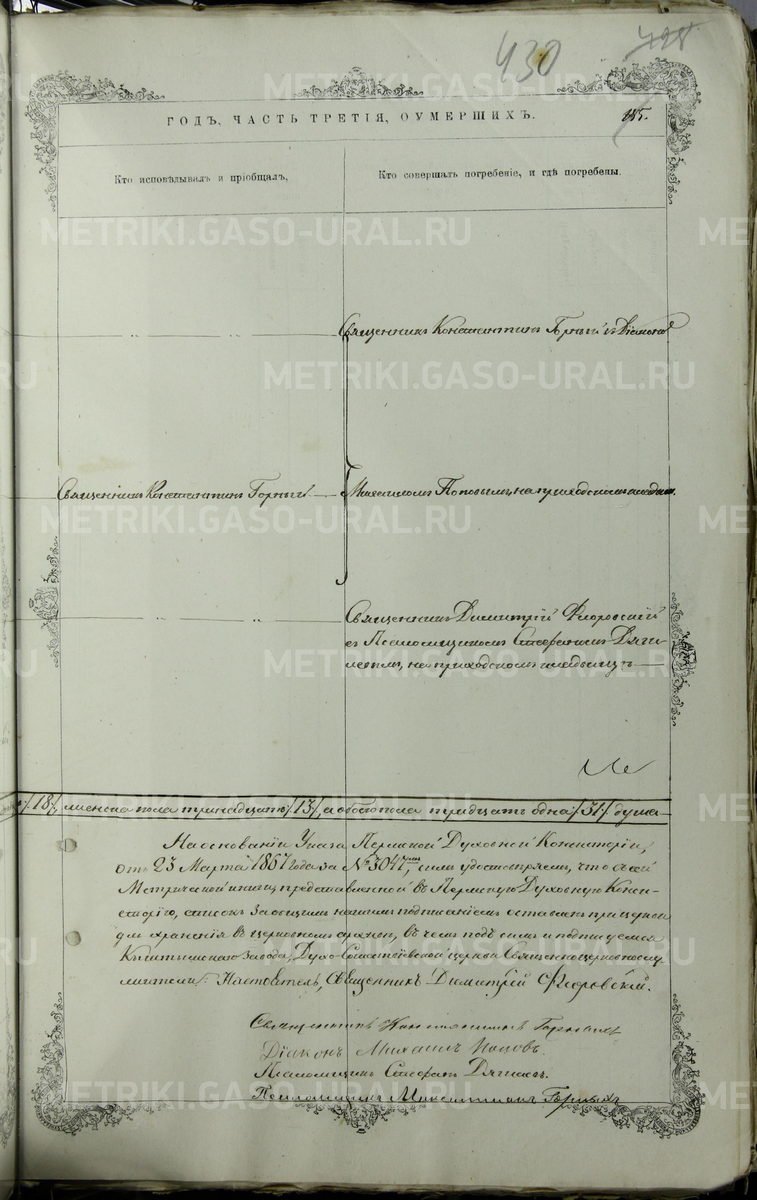 430
428
ГОДЪ, ЧАСТЬ ТРЕТІЯ, О УМЕРШИХЪ.
Кто исповѣдывалъ и пріобщалъ,
Кто совершалъ погребеніе, и гдѣ погребены.
METRIKI.GASO-URAL.RU
Священникъ Константинъ Горныхъ и Діаконъ
METRIKI.GASO-URAL.RU
Священникъ Константинъ Горныхъ
Михаиломъ Поповымъ, на приходскомъ кладбищѣ.
METRIKI.GASO-URAL.RU
Священникъ Димитрій Флоровскій
съ Псаломщикомъ Стефаномъ Дягилевымъ, на приходскомъ кладбищѣ
METRIKI.GASO-URAL.RU
/18/, женска пола тринадцать /13/, а обоего пола тридцать одна /31/ душа
На основаніи Указа Пермской Духовной Консисторіи,
отъ 23 Марта 1867 года за № 3041, симъ удостовѣряемъ, что съ сей
Метрической книги, представленной въ Пермскую Духовную Конси-
сторію, списокъ за общимъ нашимъ подписаніемъ оставленъ при церкви
для храненія въ церковномъ архивѣ, въ чемъ подъ симъ и подписуемся
Кыштымскаго завода, Духо-Сошествіевской церкви Священноцерковнослу-
жители: Настоятель, Священникъ Димитрій Флоровскій.
Священникъ Константинъ Горныхъ
Діаконъ Михаилъ Поповъ.
Псаломщикъ Стефанъ Дягилевъ.
Псаломщикъ Максимиліанъ Горныхъ
METRIKI.GASO-URAL.RU